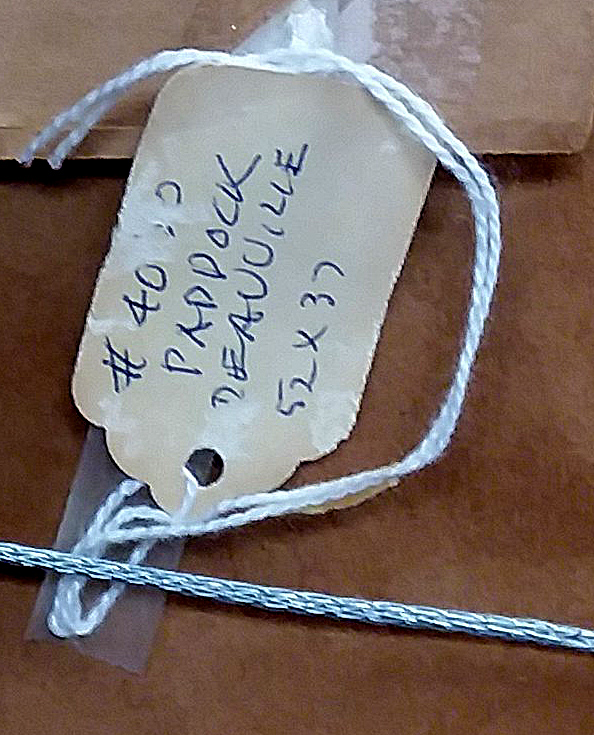 PADDOCK
DEAUVILLE
52 X 37